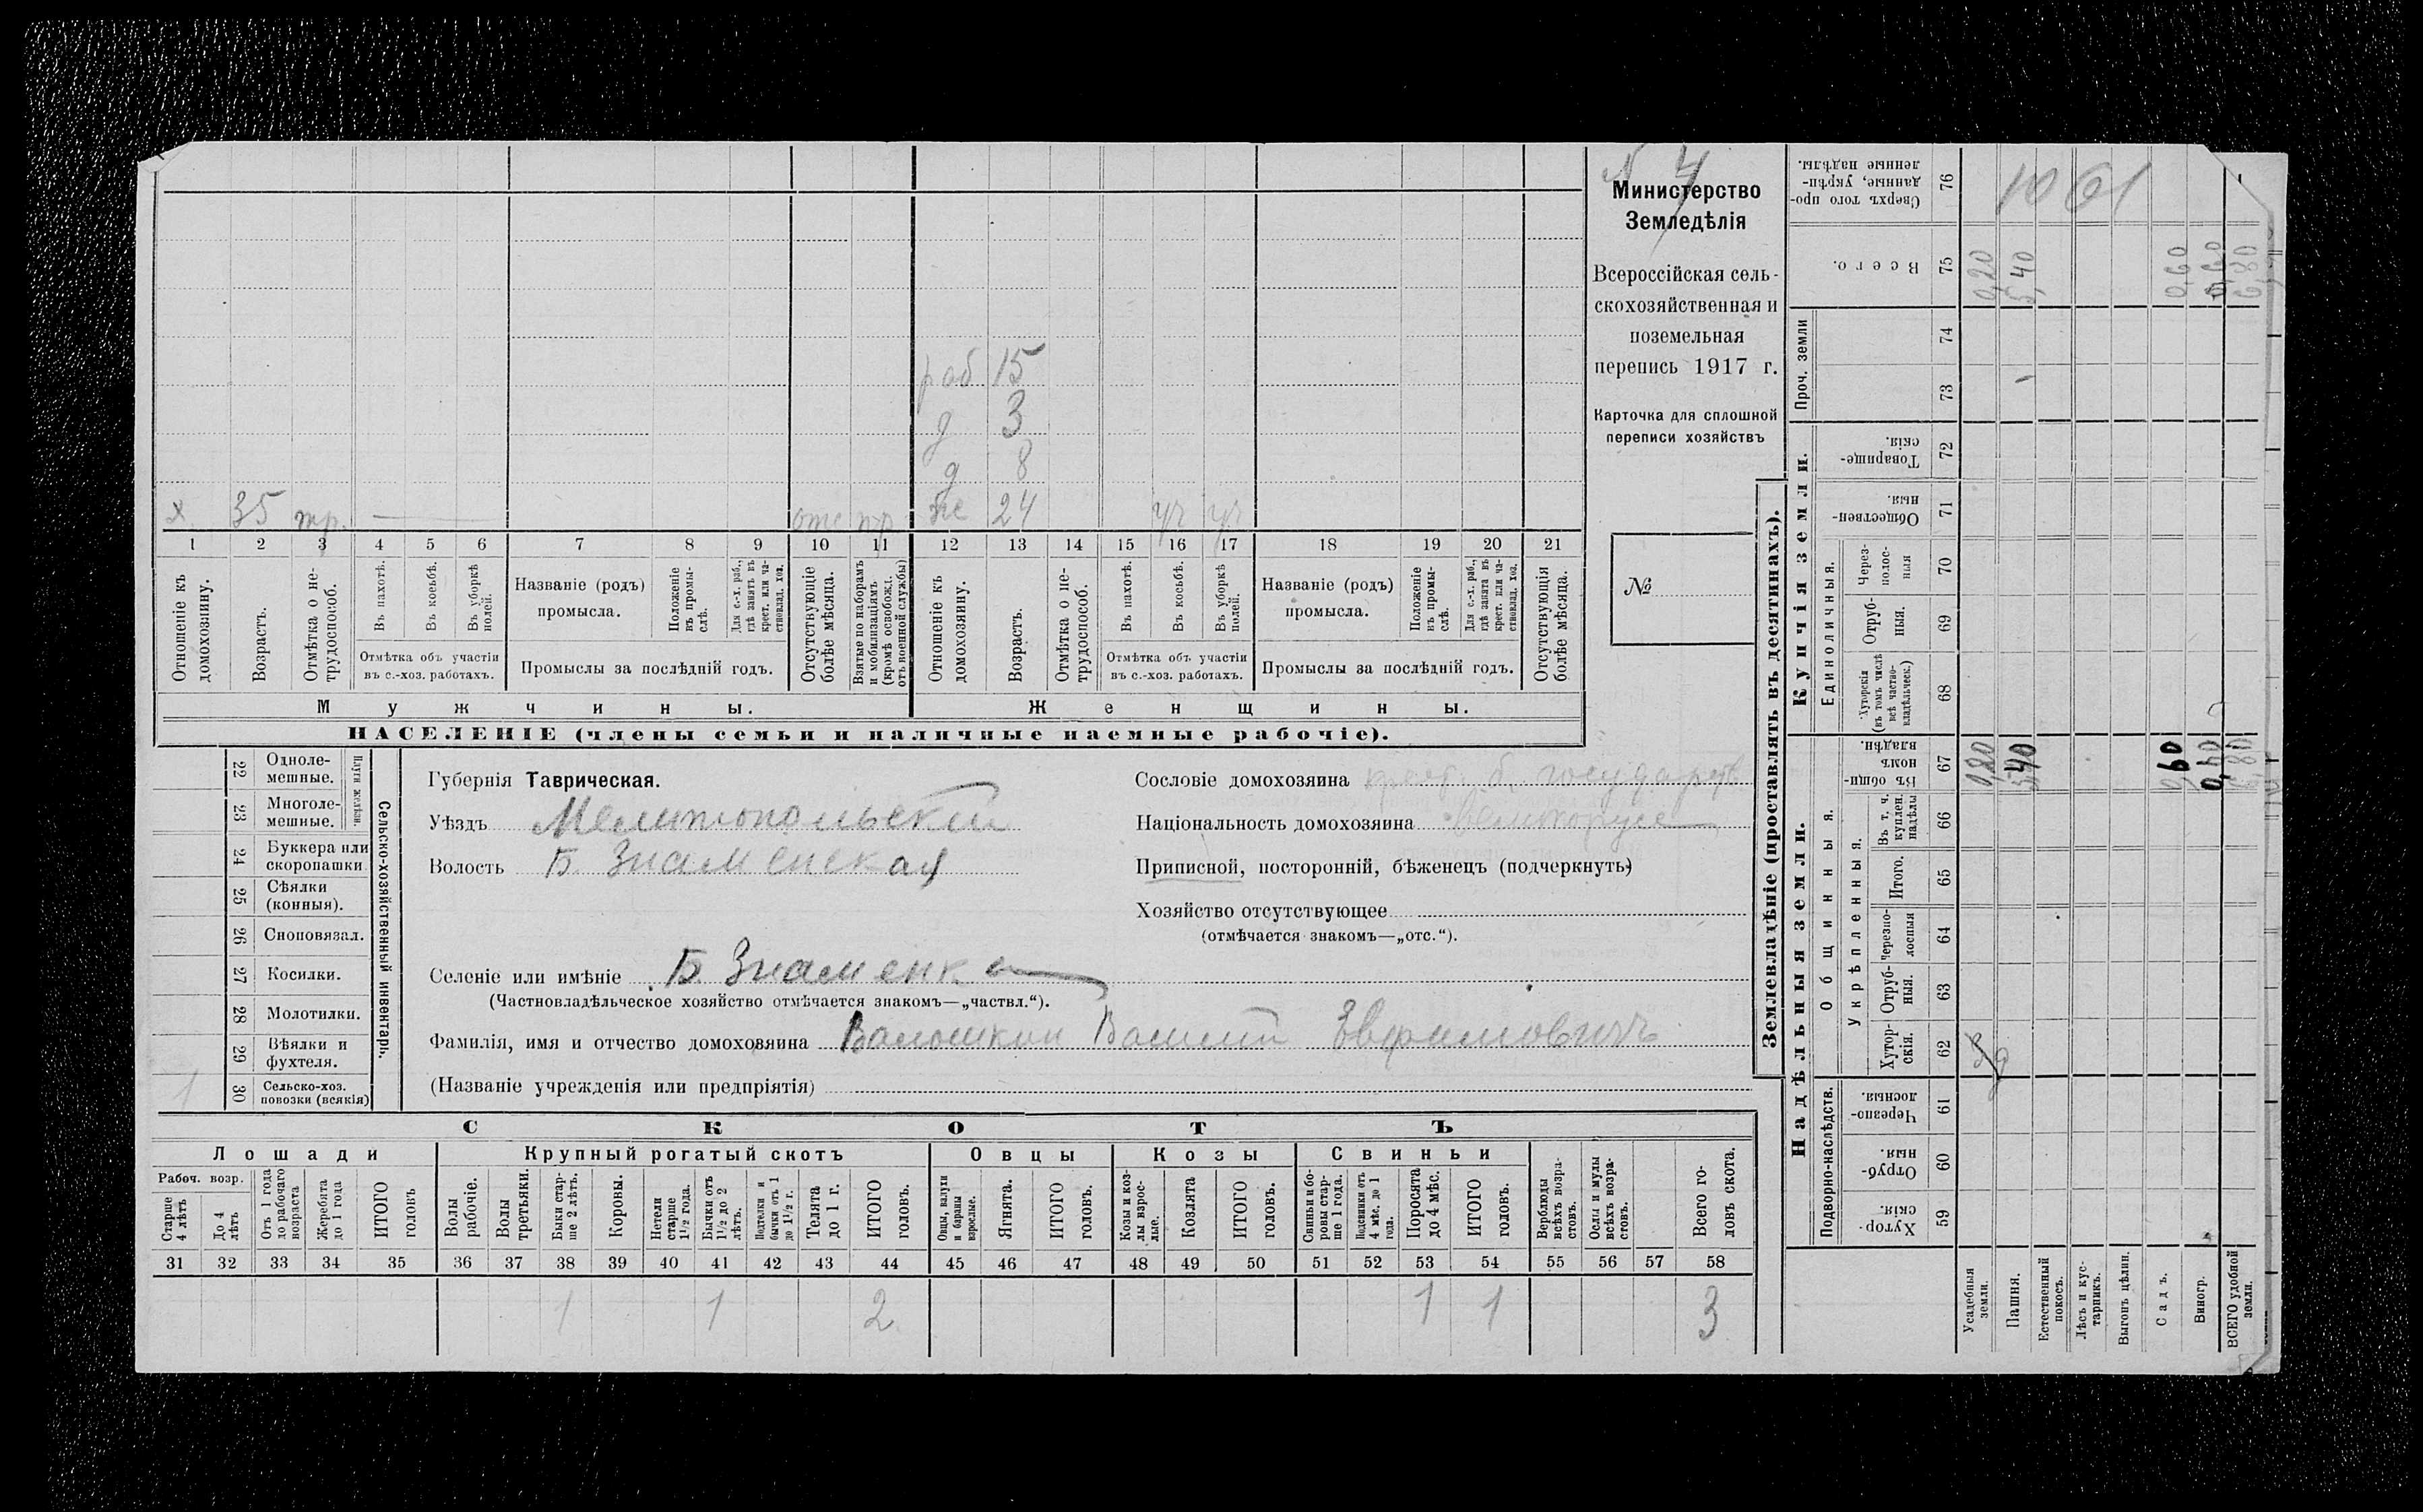 № 4
Министерство
Земледѣлія
Всероссійская сель-
скохозяйственная и
поземельная
перепись 1917 г.
Карточка для сплошной
переписи хозяйствъ
№
раб 15
д 3
д 8
х 35 тр. — отс пр же 24 уч уч
1 2 3 4 5 6 7 8 9 10 11 12 13 14 15 16 17 18 19 20 21
Отношеніе къ домохозяину.
Возрастъ.
Отмѣтка о не-трудоспособ.
Въ пахотѣ.
Въ косьбѣ.
Въ уборкѣ полей.
Отмѣтка объ участіи
въ с.-хоз. работахъ.
Названіе (родъ)
промысла.
Положеніе въ промы-слѣ.
Для с.-х. раб., гдѣ занятъ въ крест. или ча-стновлад. хоз.
Промыслы за послѣдній годъ.
Отсутствующіе болѣе мѣсяца.
Взятые по наборамъ и мобилизаціямъ (кромѣ освобожд. отъ военной службы)
Отношеніе къ домохозяину.
Возрастъ.
Отмѣтка о не-трудоспособ.
Въ пахотѣ.
Въ косьбѣ.
Въ уборкѣ полей.
Отмѣтка объ участіи
въ с.-хоз. работахъ.
Названіе (родъ)
промысла.
Положеніе въ промы-слѣ.
Для с.-х. раб., гдѣ занята въ крест. или ча-стновлад. хоз.
Промыслы за послѣдній годъ.
Отсутствующія болѣе мѣсяца.
Мужчины. Женщины.
НАСЕЛЕНІЕ (члены семьи и наличные наемные рабочіе).
22 Одноле-мешные.
23 Многоле-мешные.
Плуги желѣзн.
24 Буккера или скоропашки
25 Сѣялки (конныя).
26 Сноповязал.
27 Косилки.
28 Молотилки.
29 Вѣялки и фухтеля.
1 30 Сельско-хоз. повозки (всякія)
Сельско-хозяйственный инвентарь.
Губернія Таврическая.
Уѣздъ Мелитопольскій
Волость Б. Знаменская
Селеніе или имѣніе Б Знаменка
(Частновладѣльческое хозяйство отмѣчается знакомъ—„частвл.“).
Фамилія, имя и отчество домохозяина Валошкин Василій Эвфимовичъ
(Названіе учрежденія или предпріятія)
Сословіе домохозяина крест. б. государств
Національность домохозяина великорусс
Приписной, посторонній, бѣженецъ (подчеркнуть)
Хозяйство отсутствующее
(отмѣчается знакомъ—„отс.“).
СКОТЪ
Лошади Крупный рогатый скотъ Овцы Козы Свиньи
Рабоч. возр.
Старше 4 лѣтъ
До 4 лѣтъ
Отъ 1 года до рабочаго возраста
Жеребята до 1 года
ИТОГО головъ
Волы рабочіе.
Волы третьяки.
Быки стар-ше 2 лѣтъ.
Коровы.
Нетели старше 1½ года.
Бычки отъ 1½ до 2 лѣтъ.
Подтелки и бычки отъ 1 до 1½ г.
Телята до 1 г.
ИТОГО головъ.
Овцы, валухи и бараны взрослые.
Ягнята.
ИТОГО головъ.
Козы и коз-лы взрос-лые.
Козлята
ИТОГО головъ.
Свиньи и бо-ровы стар-ше 1 года.
Подсвинки отъ 4 мѣс. до 1 года.
Поросята до 4 мѣс.
ИТОГО головъ.
Верблюды всѣхъ возра-стовъ.
Ослы и мулы всѣхъ возра-стовъ.
Всего го-ловъ скота.
31 32 33 34 35 36 37 38 39 40 41 42 43 44 45 46 47 48 49 50 51 52 53 54 55 56 57 58
1 1 2 1 1 3
Землевладѣніе (проставлять въ десятинахъ).
Надѣльныя земли. Купчія земли. Проч. земли
Подворно-наслѣдств.
Общинныя.
Укрѣпленныя.
Единоличныя.
Хутор-скія. 59
Отруб-ныя. 60
Черезпо-лосныя. 61
Хутор-скія. 62
Отруб-ныя. 63
Черезпо-лосныя 64
Итого. 65
Въ т. ч. куплен. надѣлы 66
Въ общин-номъ владѣн. 67
Хуторскія (въ томъ числѣ всѣ частно-владѣльческ.) 68
Отруб-ныя. 69
Через-полос-ныя 70
Обществен-ныя. 71
Товарище-скія. 72
73
74
Всего. 75
Сверхъ того про-данные, укрѣп-ленные надѣлы. 76
1061
0,20 5,40 0,60 0,60 6,80
0,20 5,40 0,60 0,60 6,80
Усадебныя земли.
Пашня.
Естественный покосъ.
Лѣсъ и кус-тарникъ.
Выгонъ цѣлин.
Садъ.
Виногр.
ВСЕГО удобной земли.